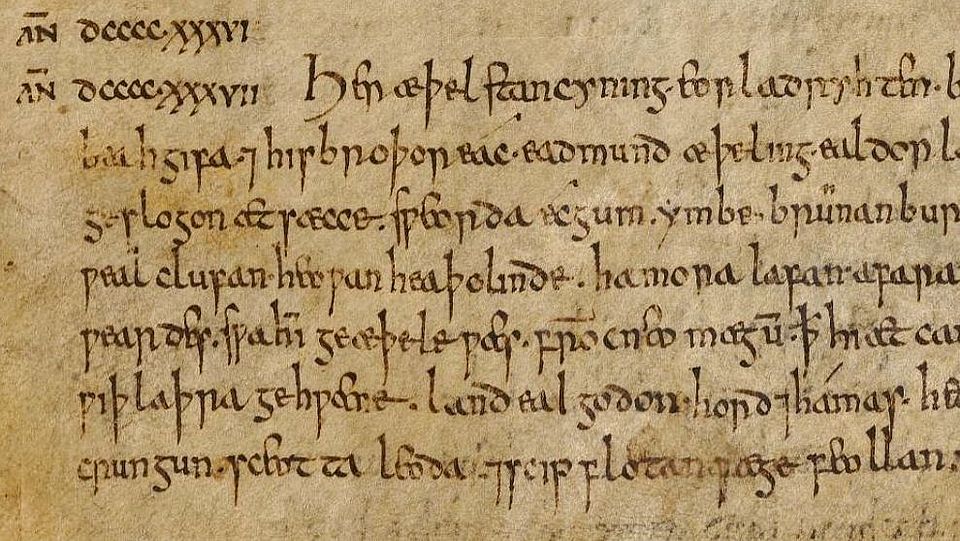 AN̄ DCCCC.XXXVI
AN̄ DCCCC.XXXVII Her æþelstan cyning. eorla dryhten. b
beahgifa. ⁊ his broþor eac. eadmund æþeling. ealdor la
geslogon æt sæcce. sweorda ecgum. ymbe. brunanbur
weal clufan. heowan heaþolinde. hamora lafan. afara
weardes. swa him geæþele wæs. from cneo mægū. þ hi æt ca
wiþ laþra gehwæne. land ealgodon. hord ⁊ hámas. he
crungun. sceotta leoda. ⁊ scip flotan. fæge feollan.